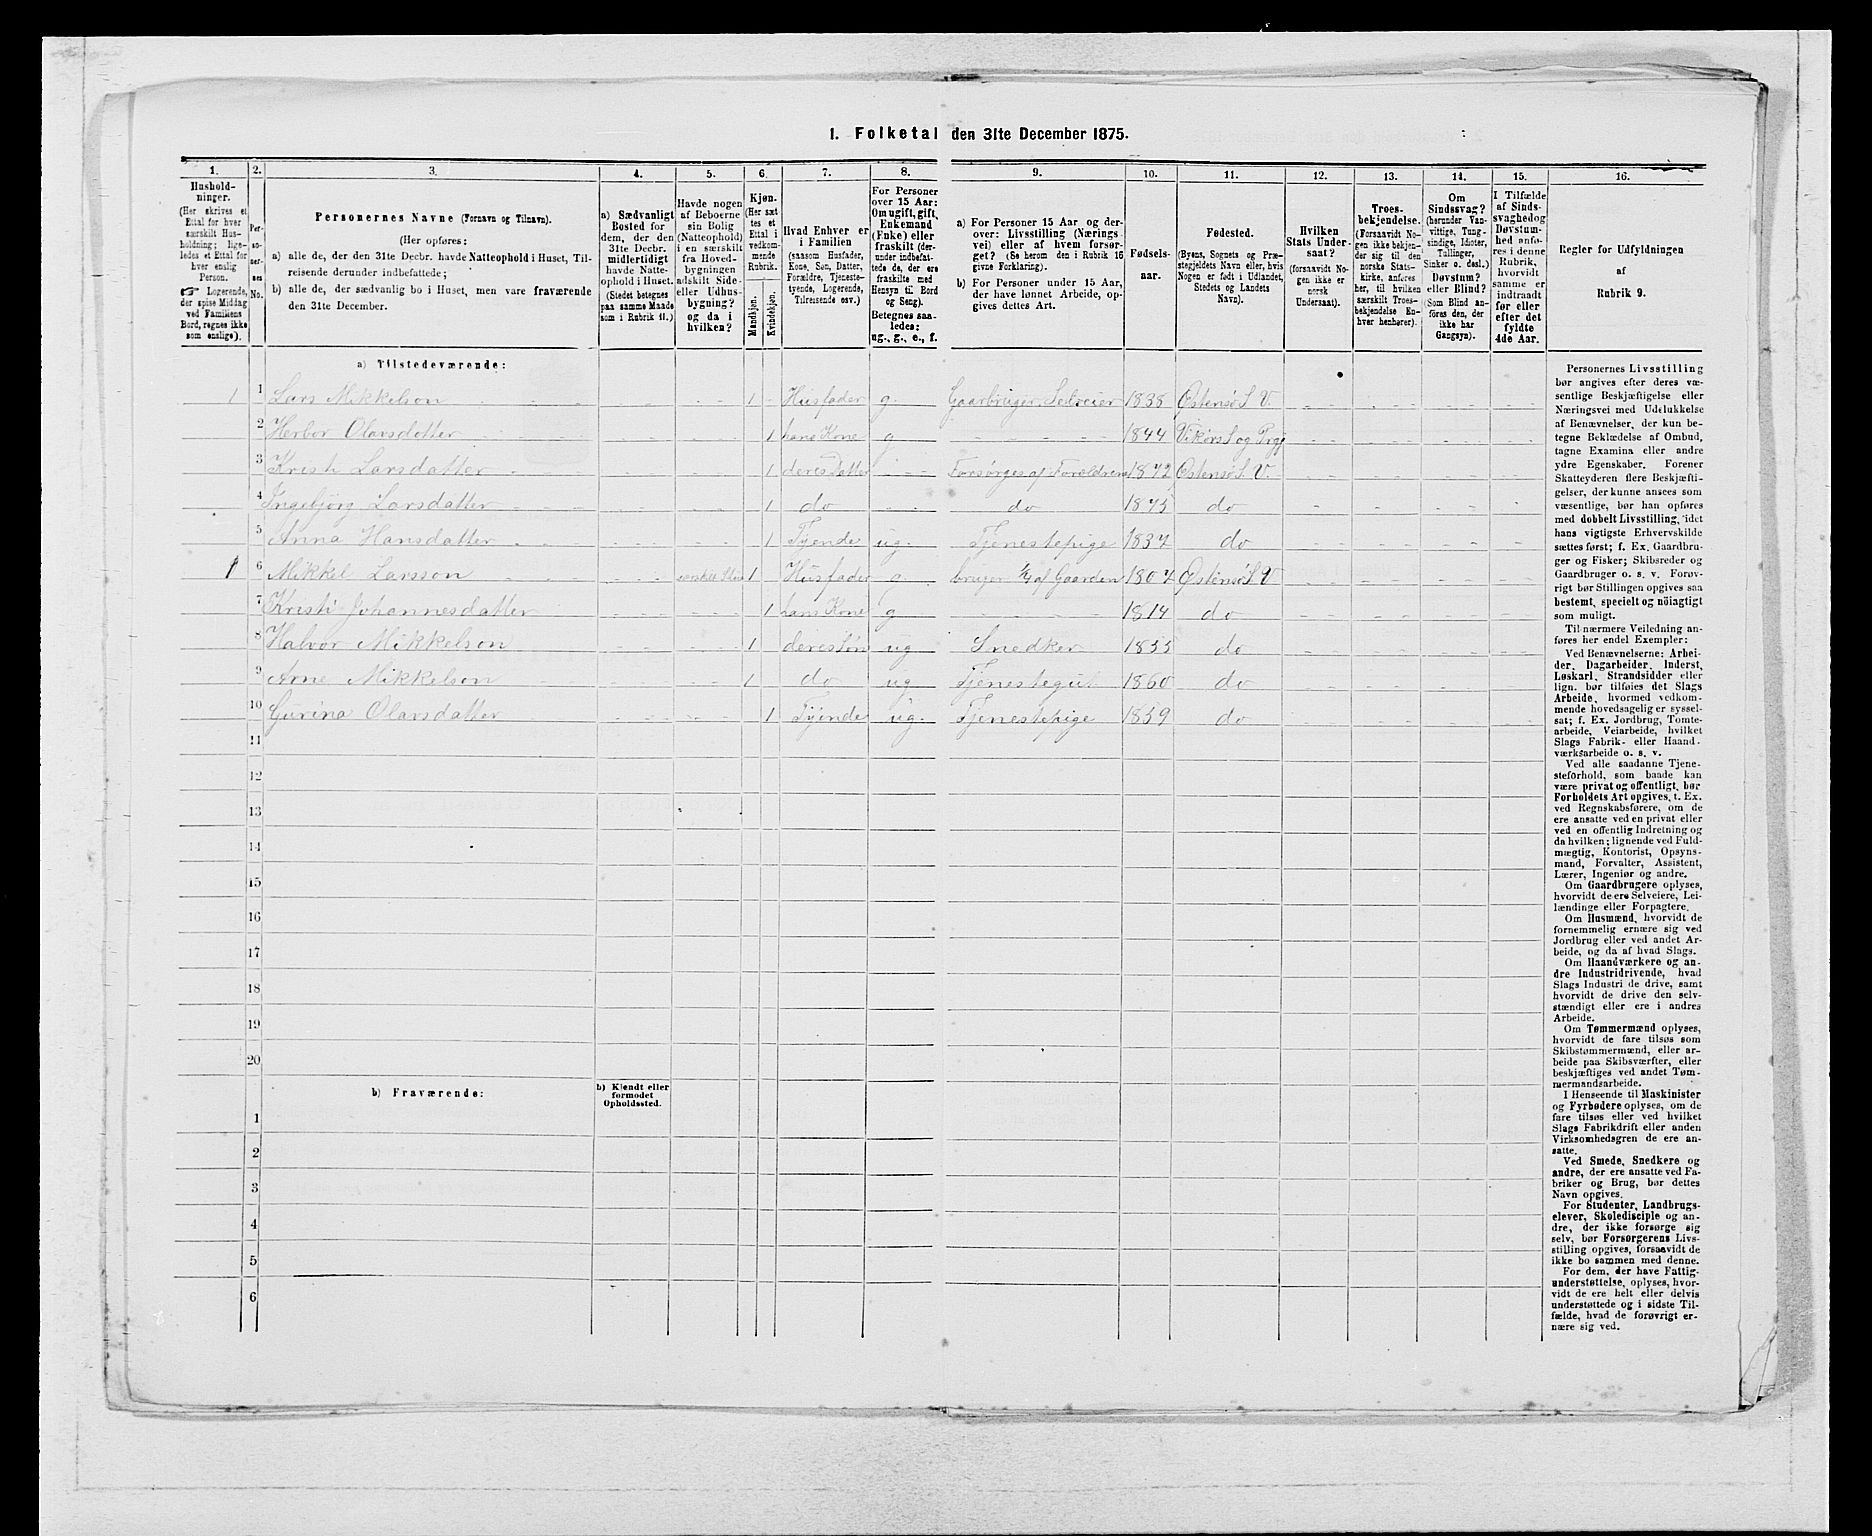 1. Folketal den 31te December 1875.
1. 2. 3. 4. 5. 6. 7. 8. 9. 10. 11. 12. 13. 14. 15. 16.
Hushold-
ninger.
(Her skrives et
Ettal for hver
særskilt Hus-
holdning; lige-
ledes et Ettal for
hver enslig
Person.
☞ Logerende,
der spise Middag
ved Familiens
Bord, regnes ikke
som enslige).
Per-
so-
ner-
nes
No.
Personernes Navne (Fornavn og Tilnavn).
(Her opføres:
a) alle de, der den 31te Decbr. havde Natteophold i Huset, Til-
reisende derunder indbefattede;
b) alle de, der sædvanlig bo i Huset, men vare fraværende
den 31te December.
a) Sædvanligt
Bosted for
dem, der den
31te Decbr.
midlertidigt
havde Natte-
ophold i Huset.
(Stedet betegnes
paa samme Maade
som i Rubrik 11.)
Havde nogen
af Beboerne
sin Bolig
(Natteophold)
i en særskilt
fra Hoved-
bygningen
adskilt Side-
eller Udhus-
bygning?
og da i
hvilken?
Kjøn.
(Her sæt-
tes et
Ettal i
vedkom-
mende
Rubrik.
Mandkjøn.
Kvindekjøn.
Hvad Enhver er
i Familien
(saasom Husfader,
Kone, Søn, Datter,
Forældre, Tjeneste-
tyende, Logerende,
Tilreisende osv.)
For Personer
over 15 Aar:
Om ugift, gift,
Enkemand
(Enke) eller
fraskilt (der-
under indbefat-
tede de, der ere
fraskilte med
Hensyn til Bord
og Seng).
Betegnes saa-
ledes:
ug., g., e., f.
a) For Personer 15 Aar og der-
over: Livsstilling (Nærings-
vei) eller af hvem forsør-
get? (Se herom den i Rubrik 16
givne Forklaring).
b) For Personer under 15 Aar,
der have lønnet Arbeide, op-
gives dettes Art.
Fødsels-
aar.
Fødested.
(Byens, Sognets og Præ-
stegjeldets Navn eller, hvis
Nogen er født i Udlandet,
Stedets og Landets
Navn).
Hvilken
Stats Under-
saat?
(forsaavidt No-
gen ikke er
norsk
Undersaat).
Troes-
bekjendelse.
(Forsaavidt No-
gen ikke bekjen-
der sig til den
norske Stats-
kirke, anføres
her, til hvilken
særskilt Troes-
bekjendelse En-
hver henhører).
Om
Sindssvag?
(herunder Van-
vittige, Tung-
sindige, Idioter,
Tullinger,
Sinker o. desl.)
Døvstum?
eller Blind?
(Som Blind an-
føres den, der
ikke har
Gangsyn).
I Tilfælde
af Sinds-
svaghed og
Døvstum-
hed anfø-
res i denne
Rubrik,
hvorvidt
samme er
indtraadt
før eller
efter det
fyldte
4de Aar.
Regler for Udfyldningen
af
Rubrik 9.
a) Tilstedeværende:
1 1 Lars Mikkelson 1 Husfader g. Gaarbruger, Selveier 1838 Østensø S. V.
2 Herbor Olavsdotter 1 hans Kone g 1844 Vikørs S og Prgj
3 Kristi Larsdatter 1 deres Datter Forsørges af Forældrene 1872 Østensø S. V.
4 Ingebjørg Larsdatter 1 do do 1875 do
5 Anna Hansdatter 1 Tyende ug. Tjenestepige 1837 do
1 6 Mikkel Larsson særskilt Stue 1 Husfader g. bruger 1/4 af Gaarden 1807 Østensø S. V
7 Kristi Johannesdatter 1 hans Kone g 1814 do
8 Halvor Mikkelson 1 deres Søn ug Snedker 1835 do
9 Arne Mikkelson 1 do ug Tjenestegut 1860 do
10 Gurina Olavsdatter 1 Tyende ug. Tjenestepige 1859 do
11
12
13
14
15
16
17
18
19
20
b) Fraværende:
b) Kjendt eller
formodet
Opholdssted.
1
2
3
4
5
6
Personernes Livsstilling
bør angives efter deres væ-
sentlige Beskjæftigelse eller
Næringsvei med Udelukkelse
af Benævnelser, der kun be-
tegne Beklædelse af Ombud,
tagne Examina eller andre
ydre Egenskaber. Forener
Skatteyderen flere Beskjæfti-
gelser, der kunne ansees som
væsentlige, bør han opføres
med dobbelt Livsstilling, idet
hans vigtigste Erhvervskilde
sættes først; f. Ex. Gaardbru-
ger og Fisker; Skibsreder og
Gaardbruger o. s. v. Forøv-
rigt bør Stillingen opgives saa
bestemt, specielt og nøiagtigt
som muligt.
Til nærmere Veiledning an-
føres her endel Exempler:
Ved Benævnelserne: Arbei-
der, Dagarbeider, Inderst,
Løskarl, Strandsidder eller
lign. bør tilføies det Slags
Arbeide, hvormed vedkom-
mende hovedsagelig er syssel-
sat; f. Ex. Jordbrug, Tomte-
arbeide, Veiarbeide, hvilket
Slags Fabrik- eller Haand-
værksarbeide o. s. v.
Ved alle saadanne Tjene-
steforhold, som baade kan
være privat og offentligt, bør
Forholdets Art opgives, t. Ex.
ved Regnskabsførere, om de
ere ansatte ved en privat eller
ved en offentlig Indretning og
da hvilken; lignende ved Fuld-
mægtig, Kontorist, Opsyns-
mand, Forvalter, Assistent,
Lærer, Ingeniør og andre.
Om Gaardbrugere oplyses,
hvorvidt de ere Selveiere, Lei-
lændinge eller Forpagtere.
Om Husmænd, hvorvidt de
fornemmelig ernære sig ved
Jordbrug eller ved andet Ar-
beide, og da af hvad Slags.
Om Haandværkere og an-
dre Industridrivende, hvad
Slags Industri de drive, samt
hvorvidt de drive den selv-
stændigt eller ere i andres
Arbeide.
Om Tømmermænd oplyses,
hvorvidt de fare tilsøs som
Skibstømmermænd, eller ar-
beide paa Skibsværfter, eller
beskjæftiges ved andet Tøm-
mermandsarbeide.
I Henseende til Maskinister
og Fyrbødere oplyses, om de
fare tilsøs eller ved hvilket
Slags Fabrikdrift eller anden
Virksomhedsgren de ere an-
satte.
Ved Smede, Snedkere og
andre, der ere ansatte ved Fa-
briker og Brug, bør dettes
Navn opgives.
For Studenter, Landbrugs-
elever, Skoledisciple og an-
dre, der ikke forsørge sig
selv, bør Forsørgerens Livs-
stilling opgives, forsaavidt de
ikke bo sammen med denne.
For dem, der have Fattig-
understøttelse, oplyses, hvor-
vidt de ere helt eller delvis
understøttede og i sidste Til-
fælde, hvad de forøvrigt er-
nære sig ved.